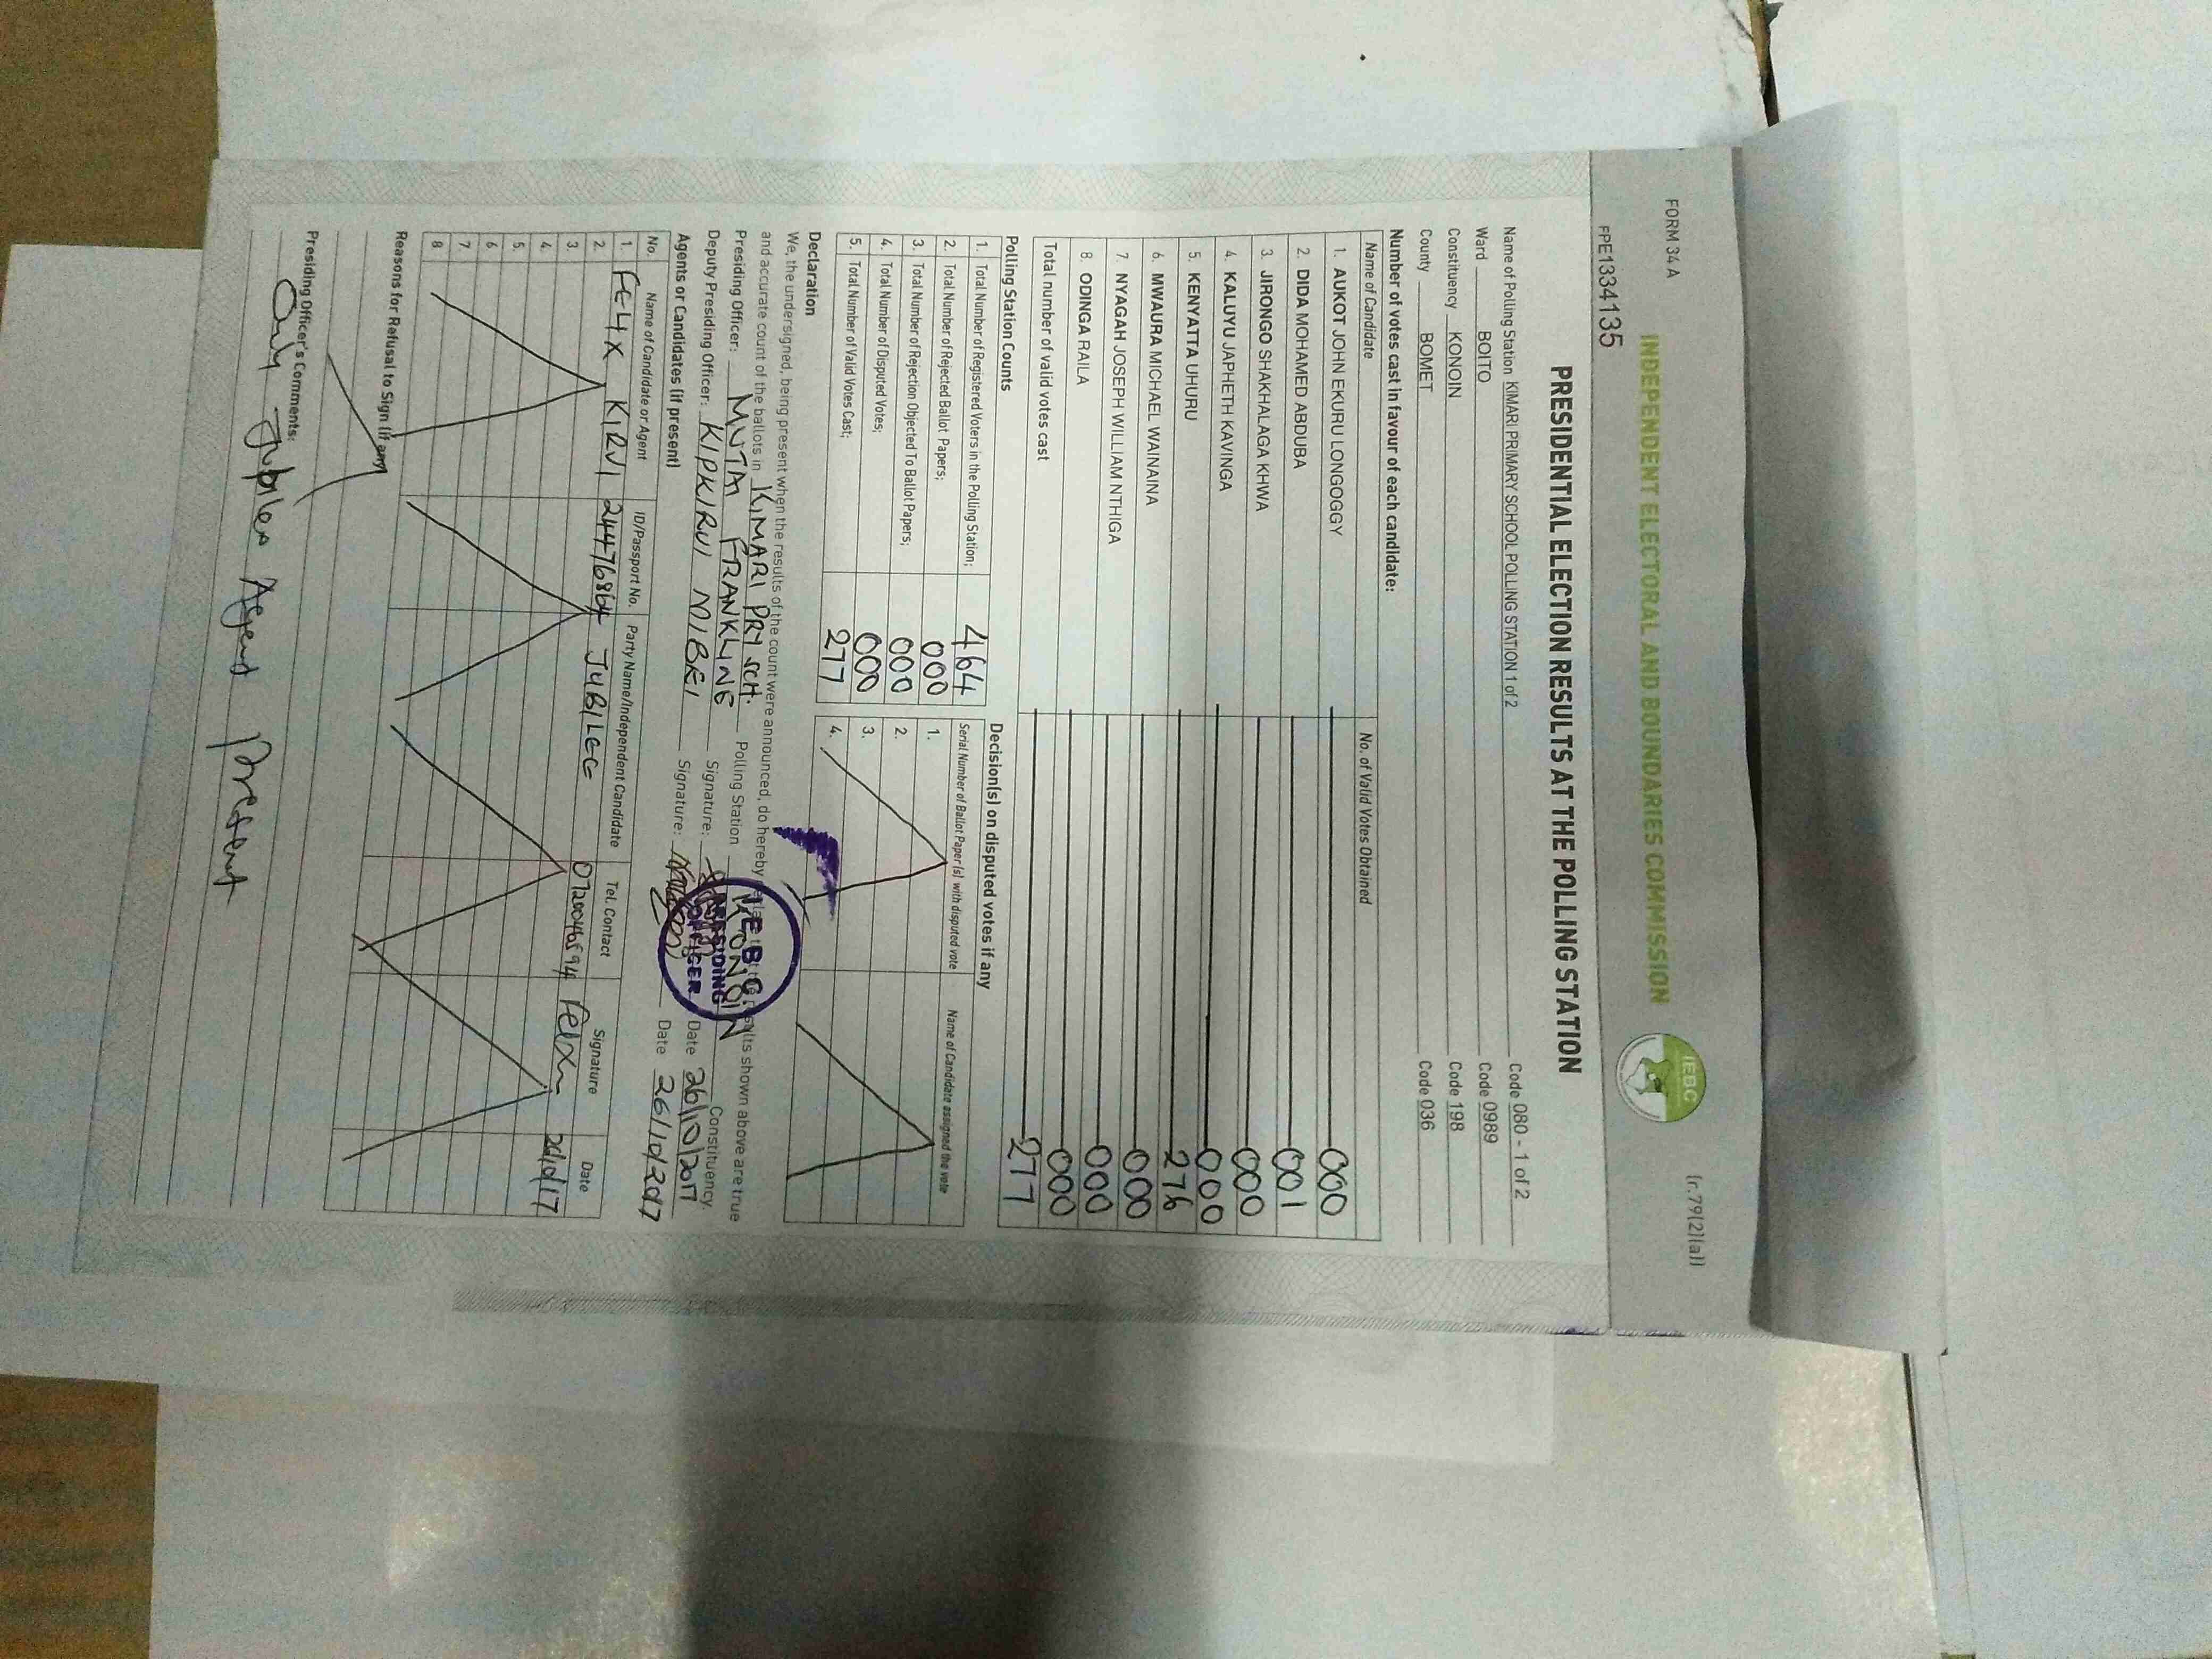 FORM 34 A
(r.79(2)(a))
INDEPENDENT ELECTORAL AND BOUNDARIES COMMISSION
IEBC
FPE1334135
PRESIDENTIAL ELECTION RESULTS AT THE POLLING STATION
Name of Polling Station KIMARI PRIMARY SCHOOL POLLING STATION 1 of 2 Code 080 - 1 of 2
Ward BOITO Code 0989
Constituency KONOIN Code 198
County BOMET Code 036
Number of votes cast in favour of each candidate:
Name of Candidate No. of Valid Votes Obtained
1. AUKOT JOHN EKURU LONGOGGY 000
2. DIDA MOHAMED ABDUBA 001
3. JIRONGO SHAKHALAGA KHWA 000
4. KALUYU JAPHETH KAVINGA 000
5. KENYATTA UHURU 276
6. MWAURA MICHAEL WAINAINA 000
7. NYAGAH JOSEPH WILLIAM NTHIGA 000
8. ODINGA RAILA 000
Total number of valid votes cast 277
Polling Station Counts
1. Total Number of Registered Voters in the Polling Station; 464
2. Total Number of Rejected Ballot Papers; 000
3. Total Number of Rejection Objected To Ballot Papers; 000
4. Total Number of Disputed Votes; 000
5. Total Number of Valid Votes Cast; 277
Decision(s) on disputed votes if any
Serial Number of Ballot Paper(s) with disputed vote Name of Candidate assigned the vote
1.
2.
3.
4.
Declaration
We, the undersigned, being present when the results of the count were announced, do hereby declare that the results shown above are true
and accurate count of the ballots in KIMARI PRY SCH. Polling Station KONOIN Constituency.
Presiding Officer: MUTAI FRANKLINE Signature: Date 26/10/2017
Deputy Presiding Officer: KIPKIRUI MIBEI Signature: Date 26/10/2017
I.E.B.C.
PRESIDING
OFFICER
Agents or Candidates (if present)
No. Name of Candidate or Agent ID/Passport No. Party Name/Independent Candidate Tel. Contact Signature Date
1. FELIX KIRUI 24476864 JUBILEE 0720046594 Felix
2.
3.
4.
5.
6.
7.
8
Reasons for Refusal to Sign (if any)
Presiding Officer's Comments:
Only Jubilee Agent present